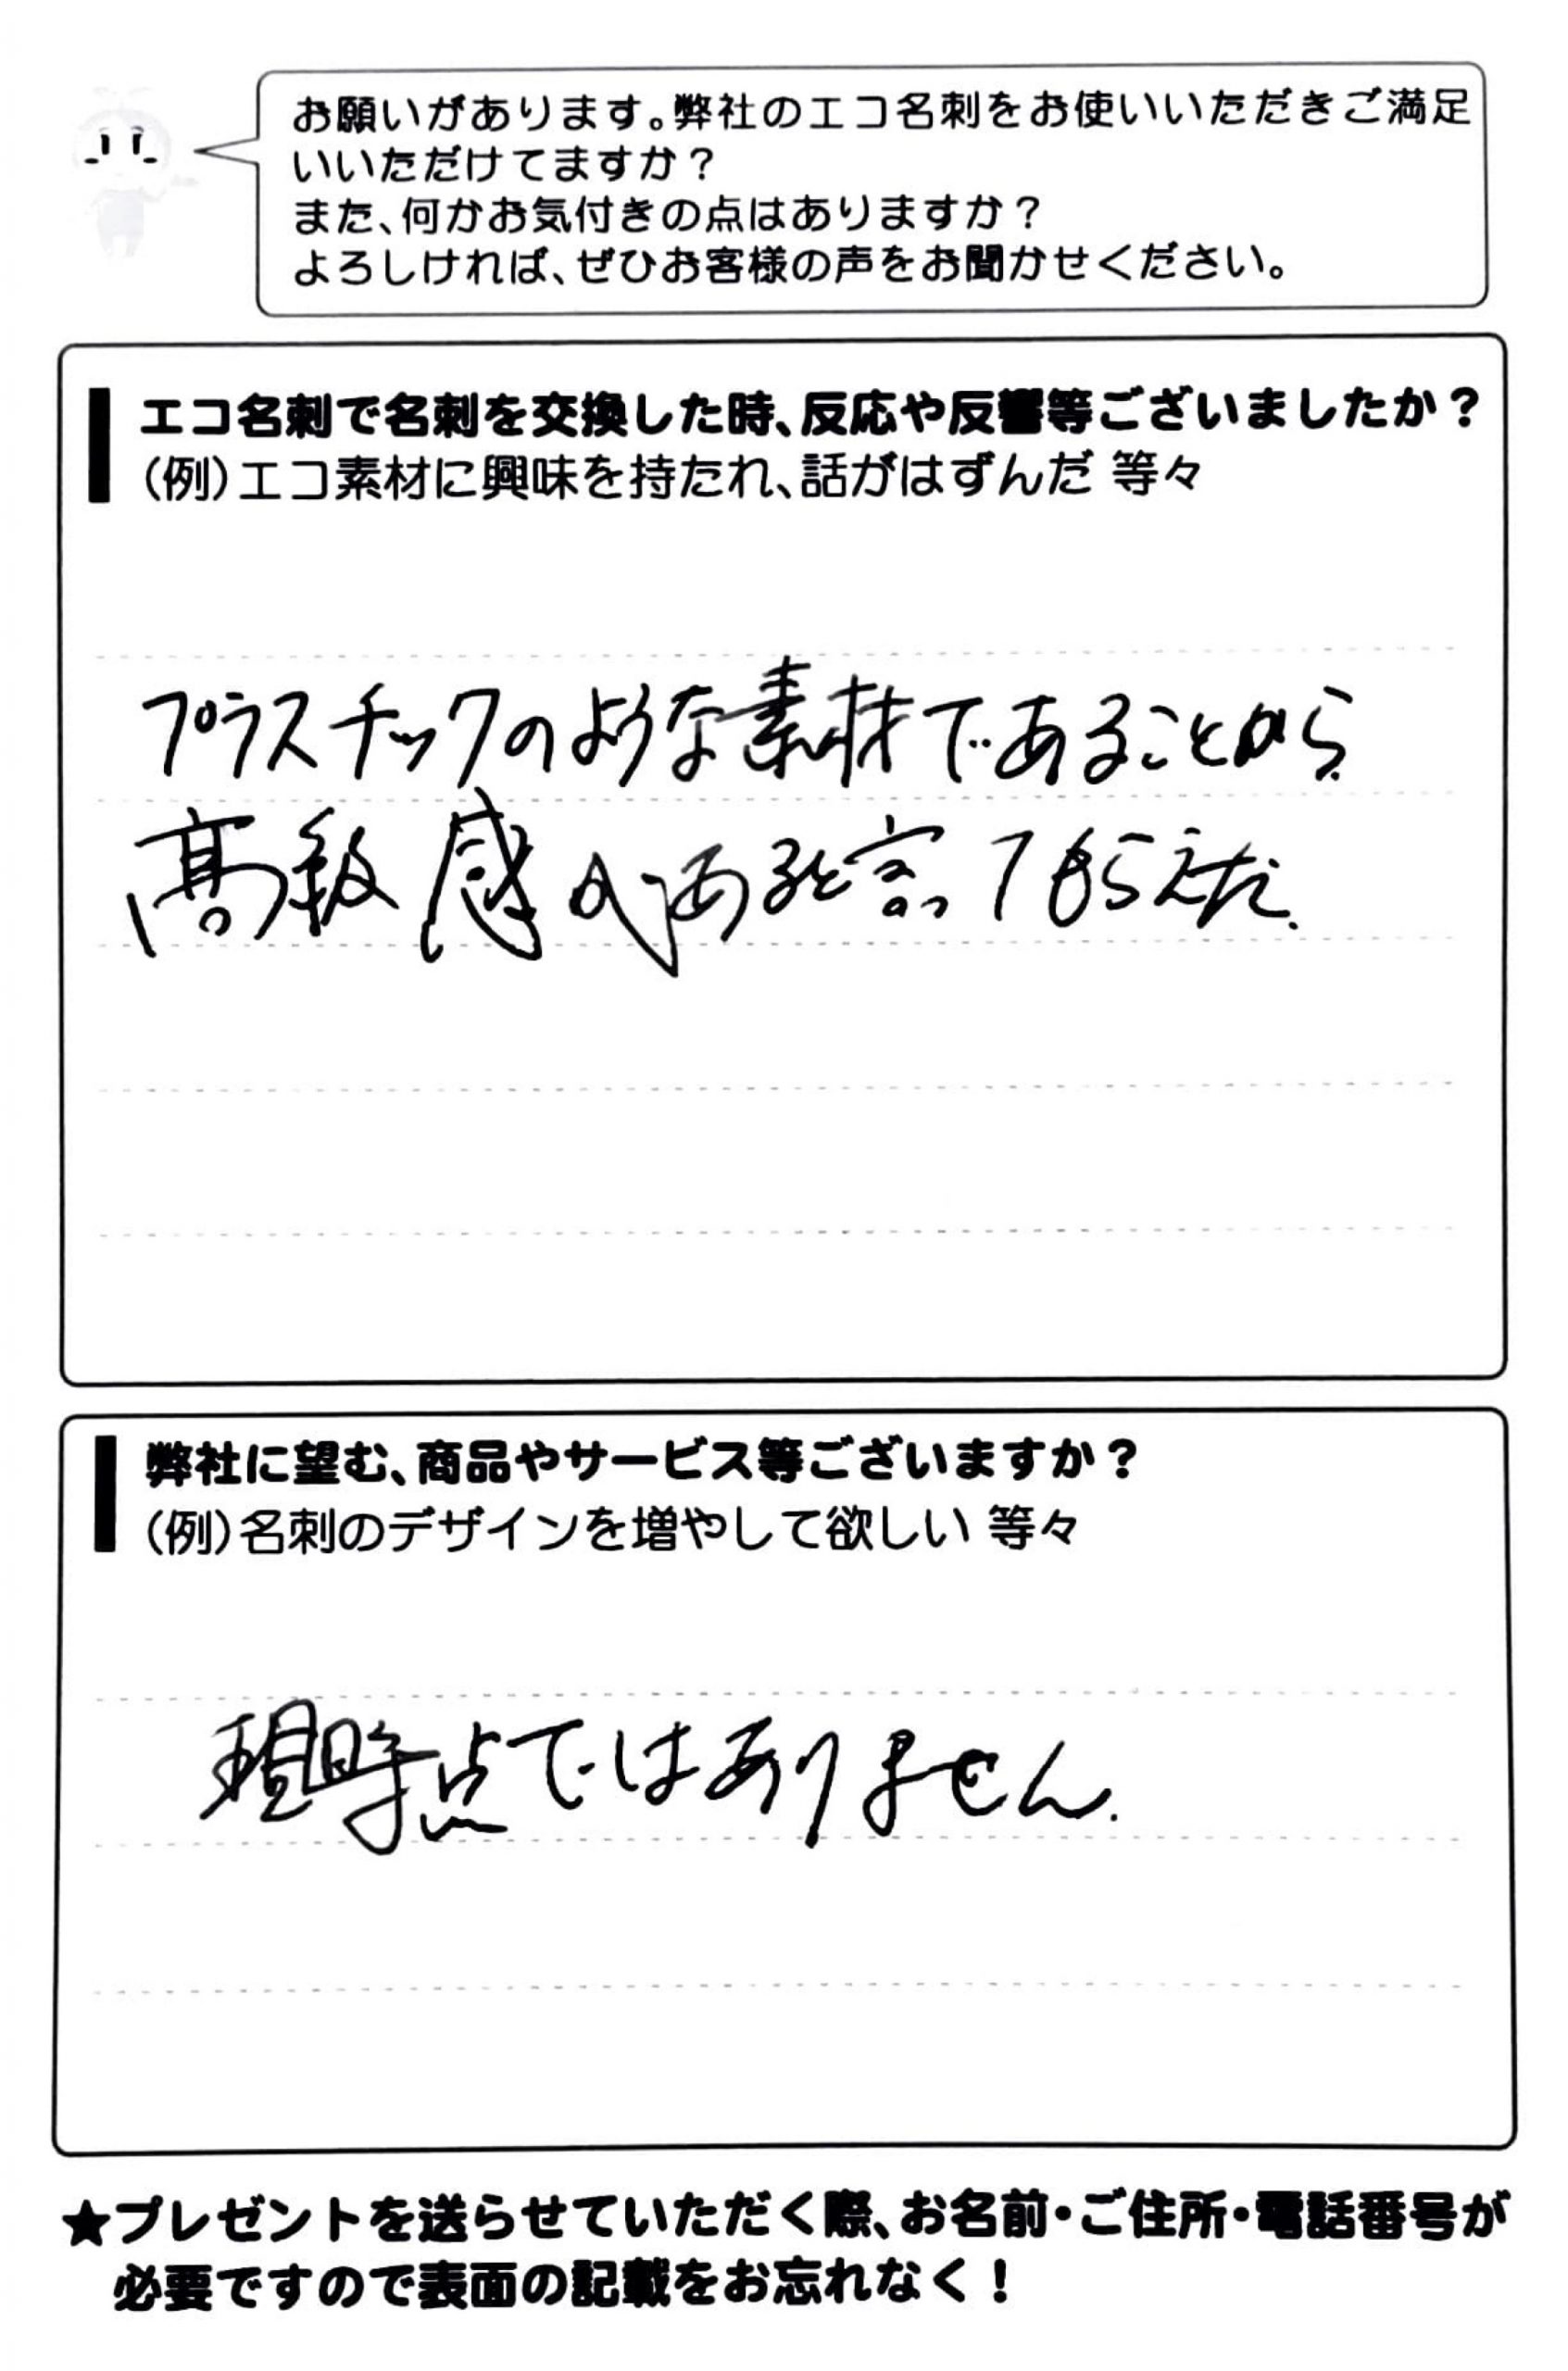 お願いがあります。弊社のエコ名刺をお使いいただきご満足
いいただけてますか？
また、何かお気付きの点はありますか？
よろしければ、ぜひお客様の声をお聞かせください。
エコ名刺で名刺を交換した時、反応や反響等ございましたか？
（例）エコ素材に興味を持たれ、話がはずんだ 等々
プラスチックのような素材であることから
高級感があると言ってもらえた.
弊社に望む、商品やサービス等ございますか？
（例）名刺のデザインを増やして欲しい 等々
現時点ではありません.
★プレゼントを送らせていただく際、お名前・ご住所・電話番号が
必要ですので表面の記載をお忘れなく！